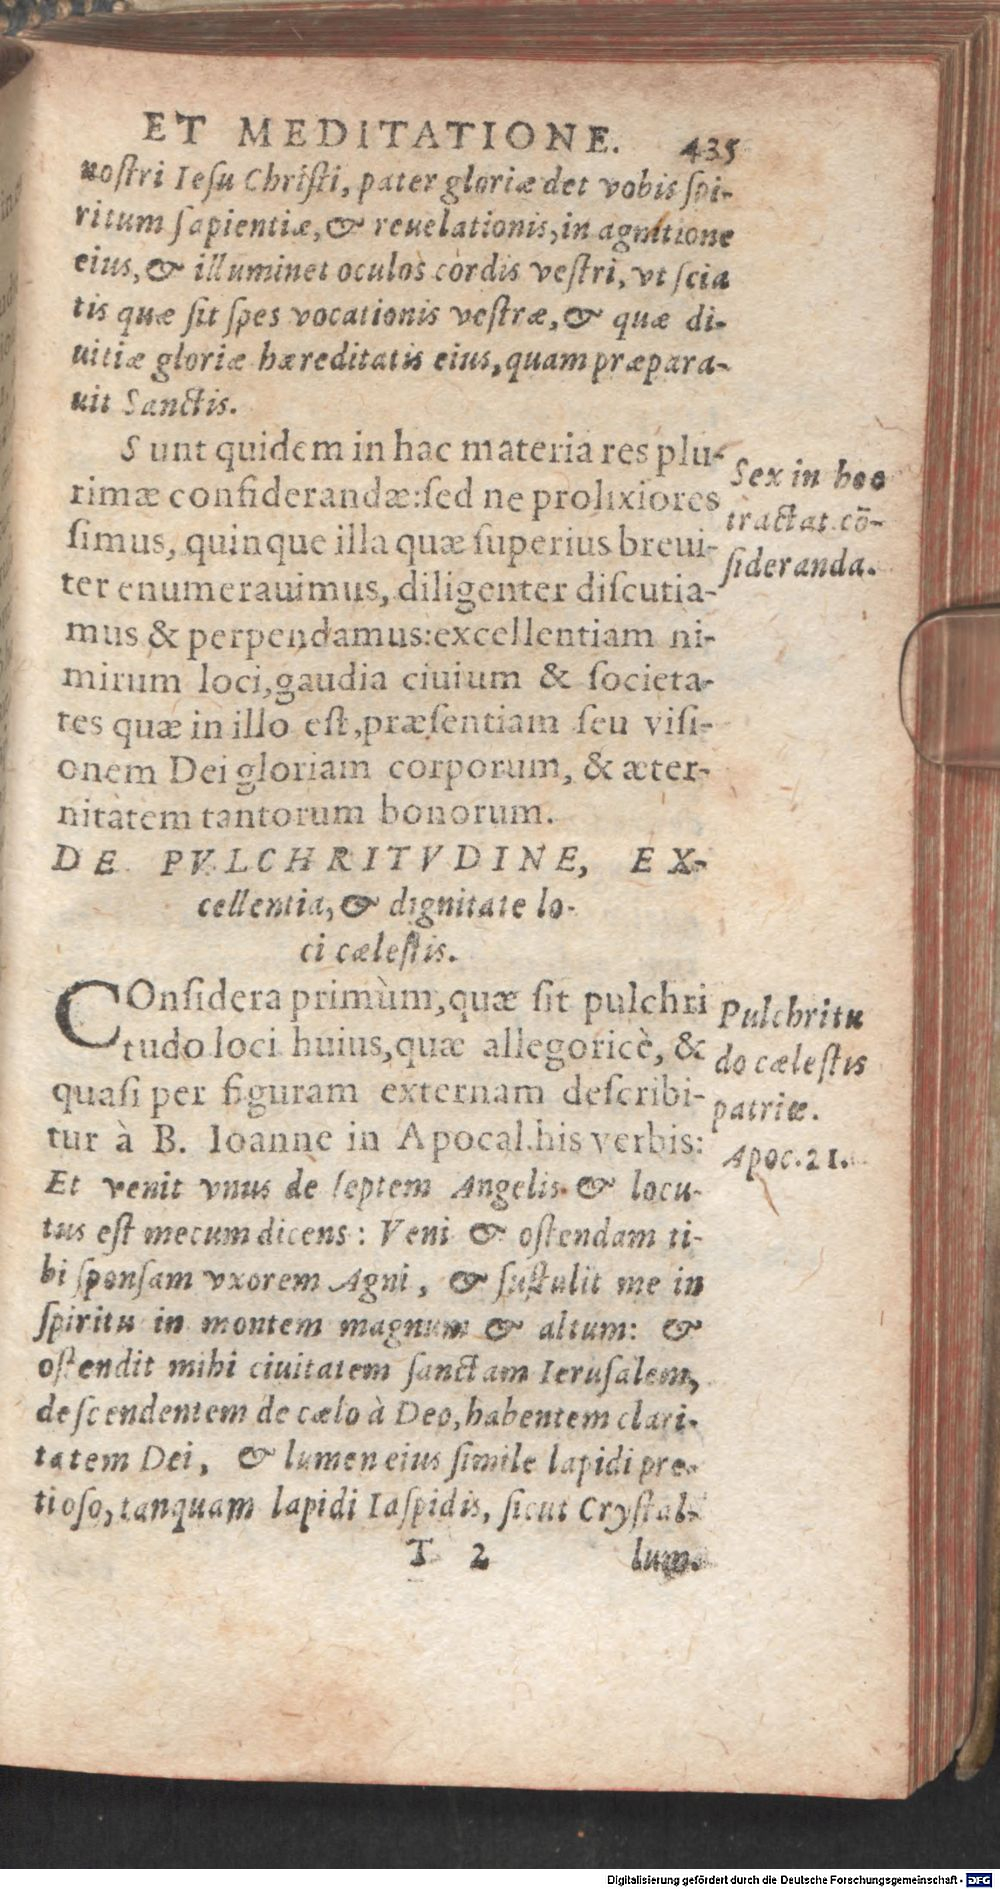 ET MEDITATIONE. 435
noſtri Ieſu Chriſti, pater gloriæ det vobis ſpi-
ritum ſapientiæ, & reuelationis, in agnitione
eius, & illuminet oculos cordis veſtri, vt ſcia
tis quæ ſit ſpes vocationis veſtræ, & quæ di-
uitiæ gloriæ hæreditatis eius, quam præpara-
uit Sanctis.
Sunt quidem in hac materia res plu-
rimæ conſiderandæ: ſed ne prolixiores
ſimus, quinque illa quæ ſuperius breui-
ter enumerauimus, diligenter diſcutia-
mus & perpendamus: excellentiam ni-
mirum loci, gaudia ciuium & ſocieta-
tes quæ in illo eſt, præſentiam ſeu viſi-
onem Dei gloriam corporum, & æter-
nitatem tantorum bonorum.
Sex in hoc
tractat. cō-
ſideranda.
DE PVLCHRITVDINE, EX-
cellentia, & dignitate lo-
ci cæleſtis.
COnſidera primùm, quæ ſit pulchri
tudo loci huius, quæ allegoricè, &
quaſi per figuram externam deſcribi-
tur à B. Ioanne in Apocal. his verbis:
Et venit vnus de ſeptem Angelis & locu-
tus eſt mecum dicens: Veni & oſtendam ti-
bi ſponſam vxorem Agni, & ſuſtulit me in
ſpiritu in montem magnum & altum: &
oſtendit mihi ciuitatem ſanctam Ieruſalem,
deſcendentem de cælo à Deo, habentem clari-
tatem Dei, & lumen eius ſimile lapidi pre-
tioſo, tanquam lapidi Iaſpidis, ſicut Cryſtal-
Pulchritu
do cæleſtis
patriæ.
Apoc. 21.
T 2 lum.
Digitalisierung gefördert durch die Deutsche Forschungsgemeinschaft - DFG